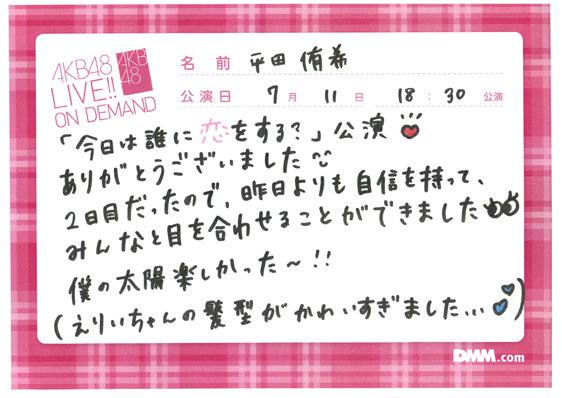 AKB48
LIVE!!
ON DEMAND
AKB
48
名前 平田 侑希
公演日 7月 11日 18:30 公演
「今日は誰に恋をする?」公演
ありがとうございました
2日目だったので、昨日よりも自信を持って、
みんなと目を合わせることができました
僕の太陽楽しかった〜!!
(えりいちゃんの髪型がかわいすぎました...)
DMM.com